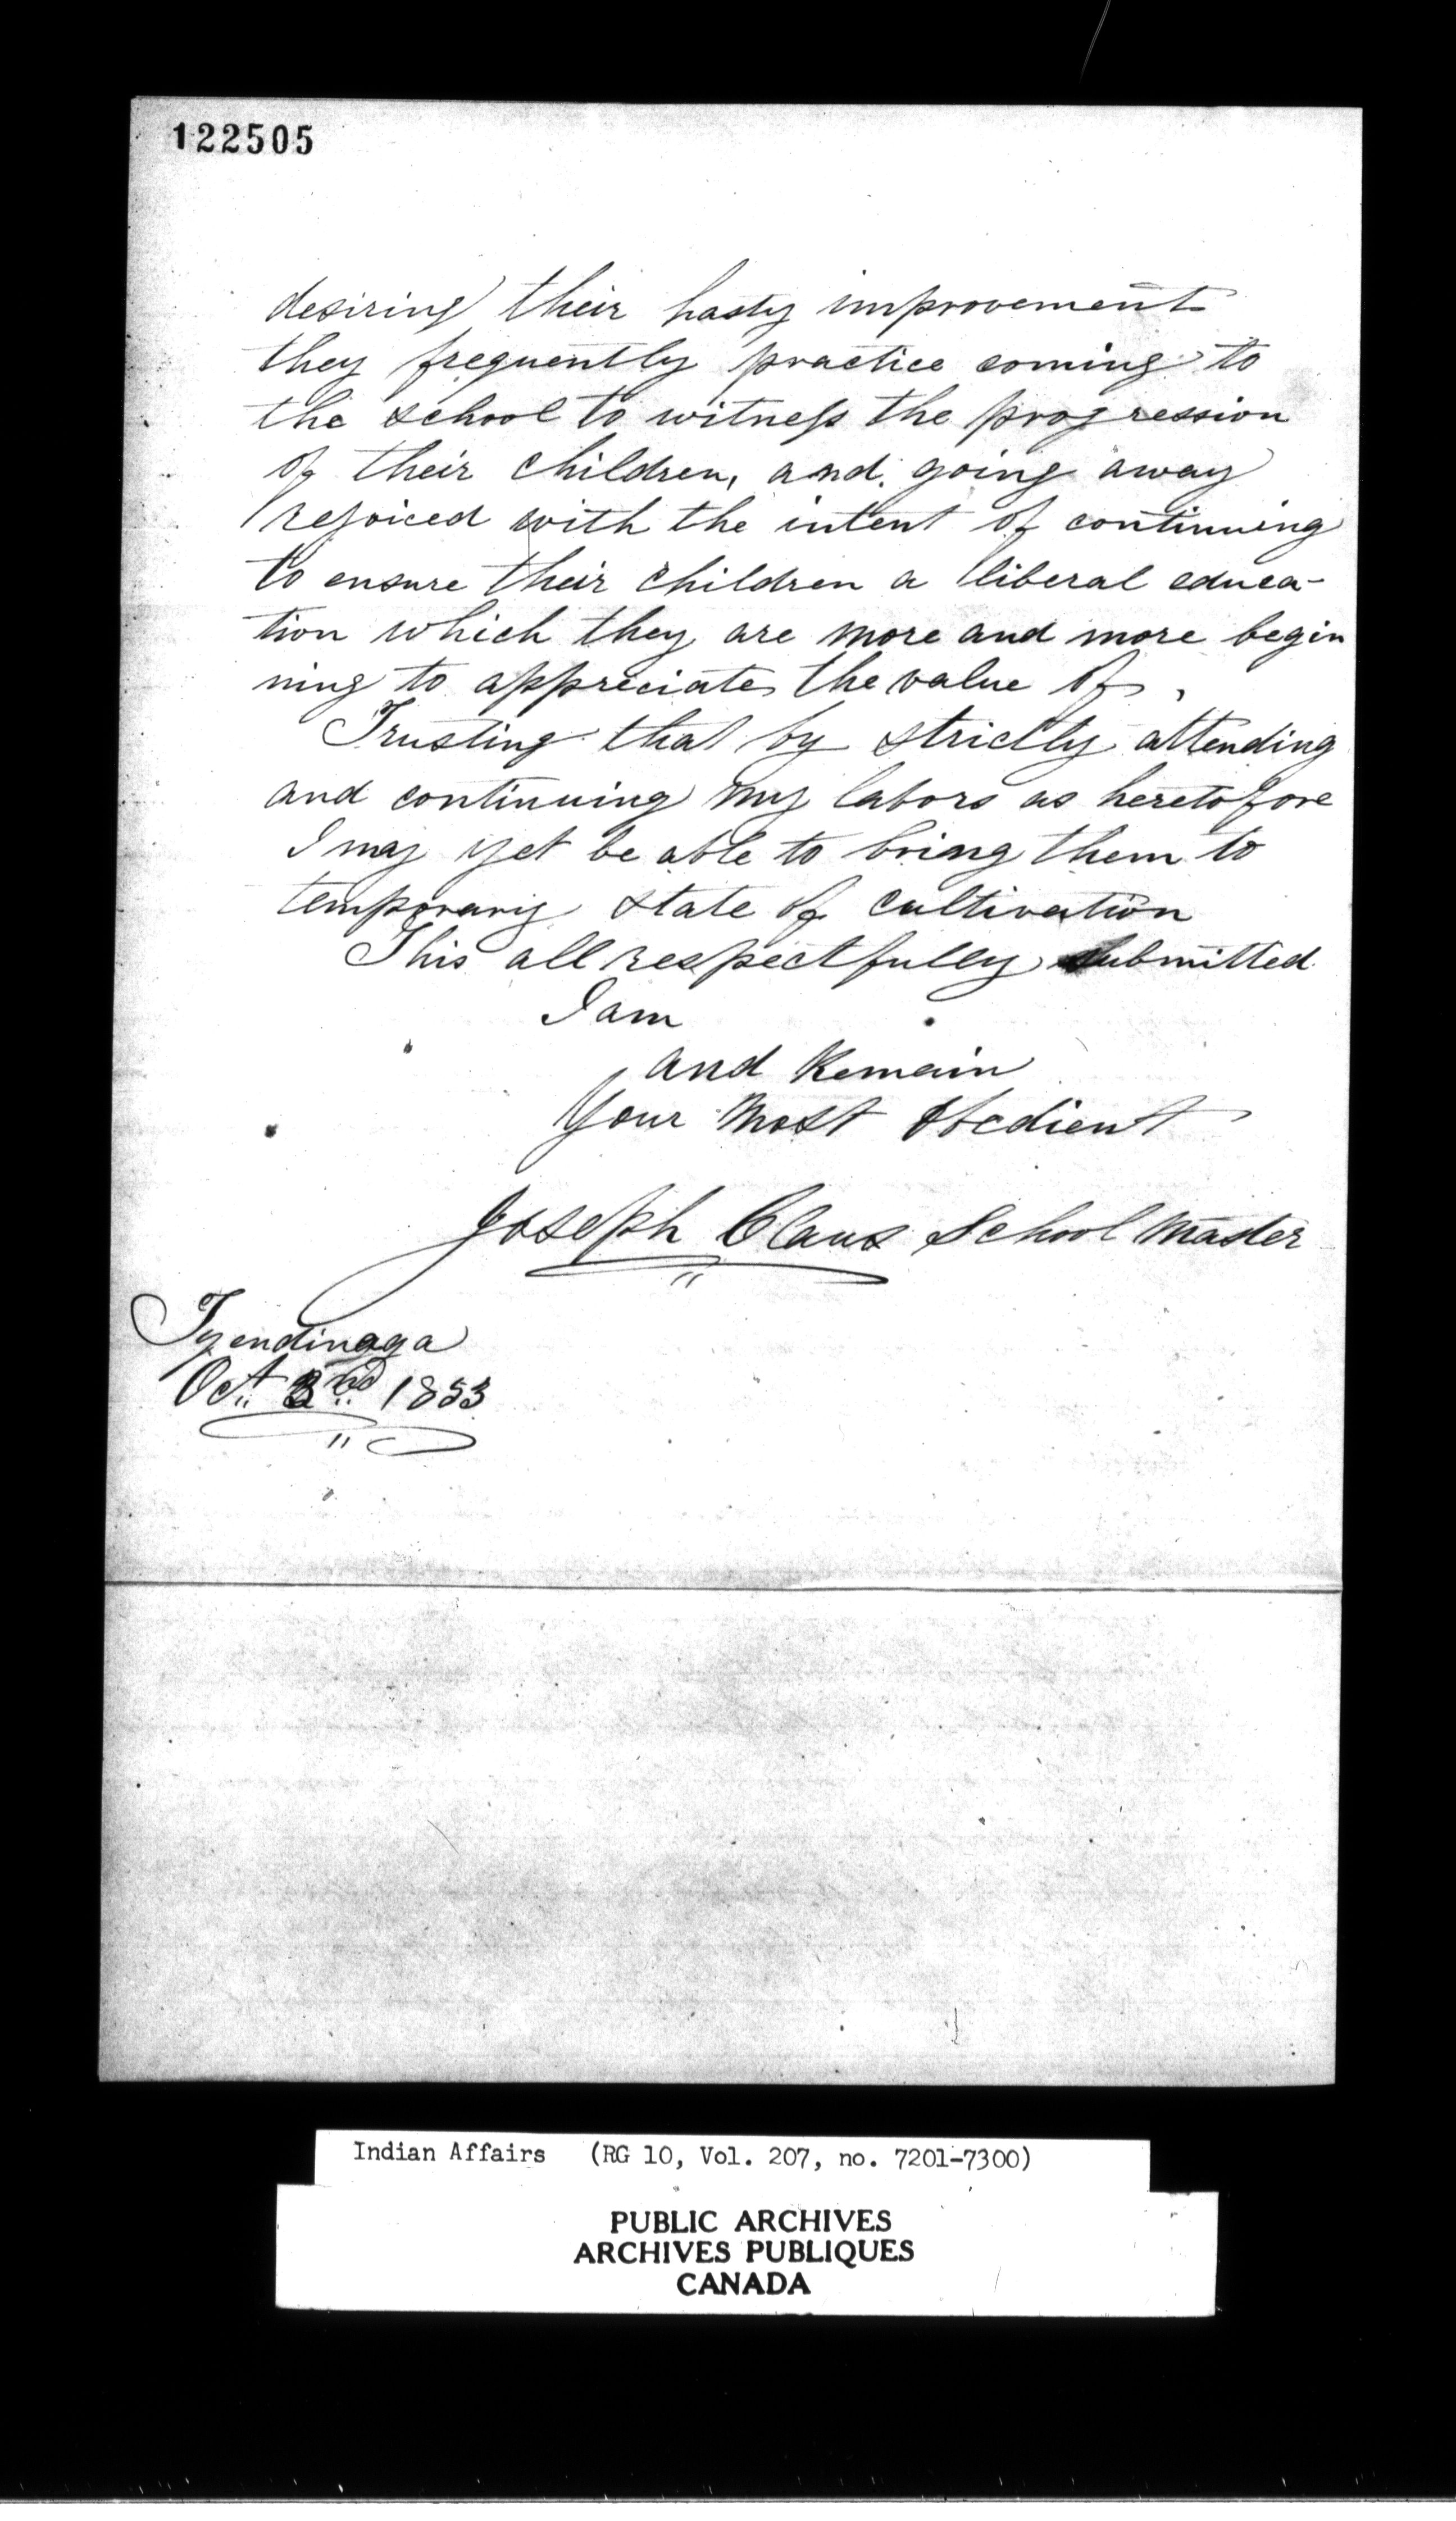 122505
desiring their hasty improvement
they frequently practice coming to
the school to witness the progression
of their children, and going away
rejoiced with the intent of continuing
to ensure their children a liberal educa-
tion which they are more and more begin
ning to appreciate the value of.
Trusting that by strictly attending
and continuing my labors as heretofore
I may yet be able to bring them to
temporary state of cultivation
This all respectfully submitted
I am
and Remain
Your Most Obedient
Joseph Claus School Master
Tyendinaga
Oct 1853
Indian Affairs (RG 10, Vol. 207, no. 7201-7300)
PUBLIC ARCHIVES
ARCHIVES PUBLIQUES
CANADA